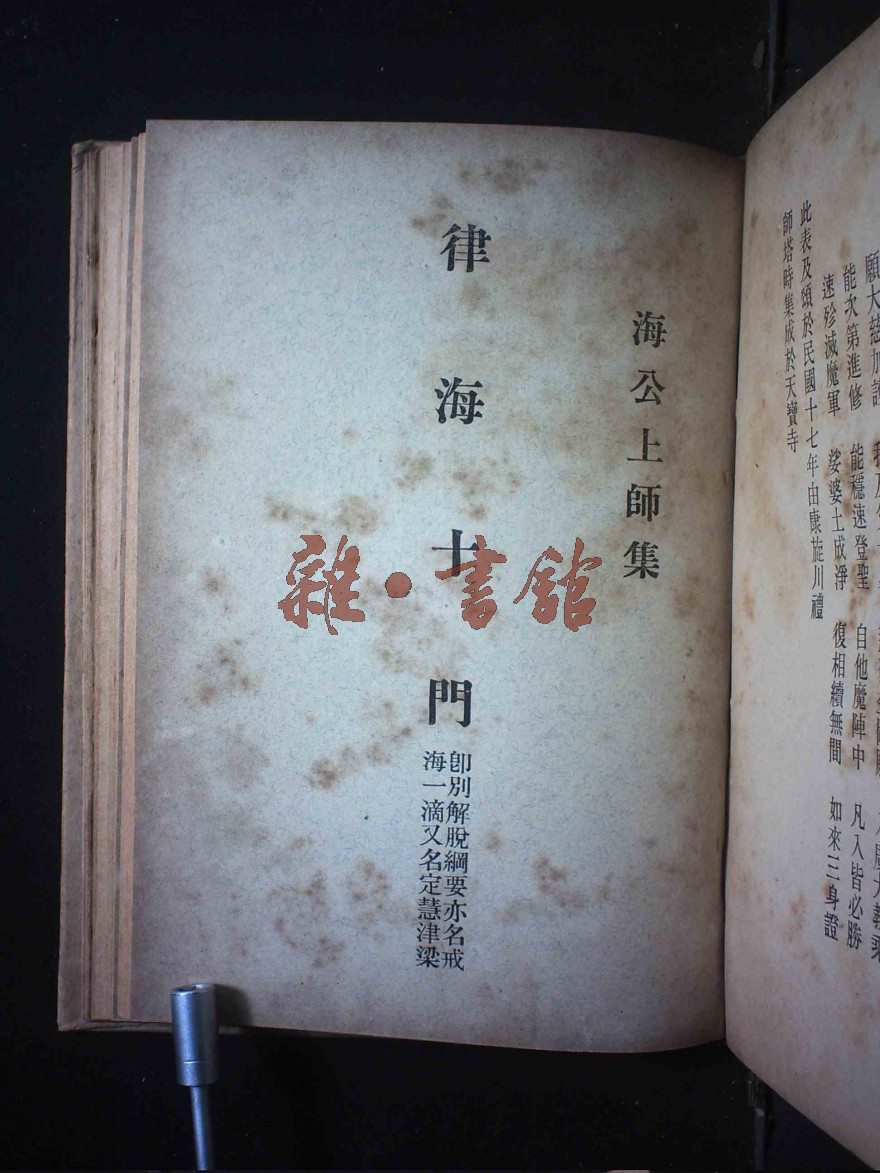 大慈加護
能次第進修 能穩速登聖 自他魔陣中 凡入皆必勝
速殄滅魔軍 娑婆土成淨 復相續無間 如來三身證
此表及頌於民國十七年由康旋川禮
師塔時集成於天寶寺
海公上師集
律海十門
卽別解脫綱要亦名戒
海一滴又名定慧津梁
雜·書館